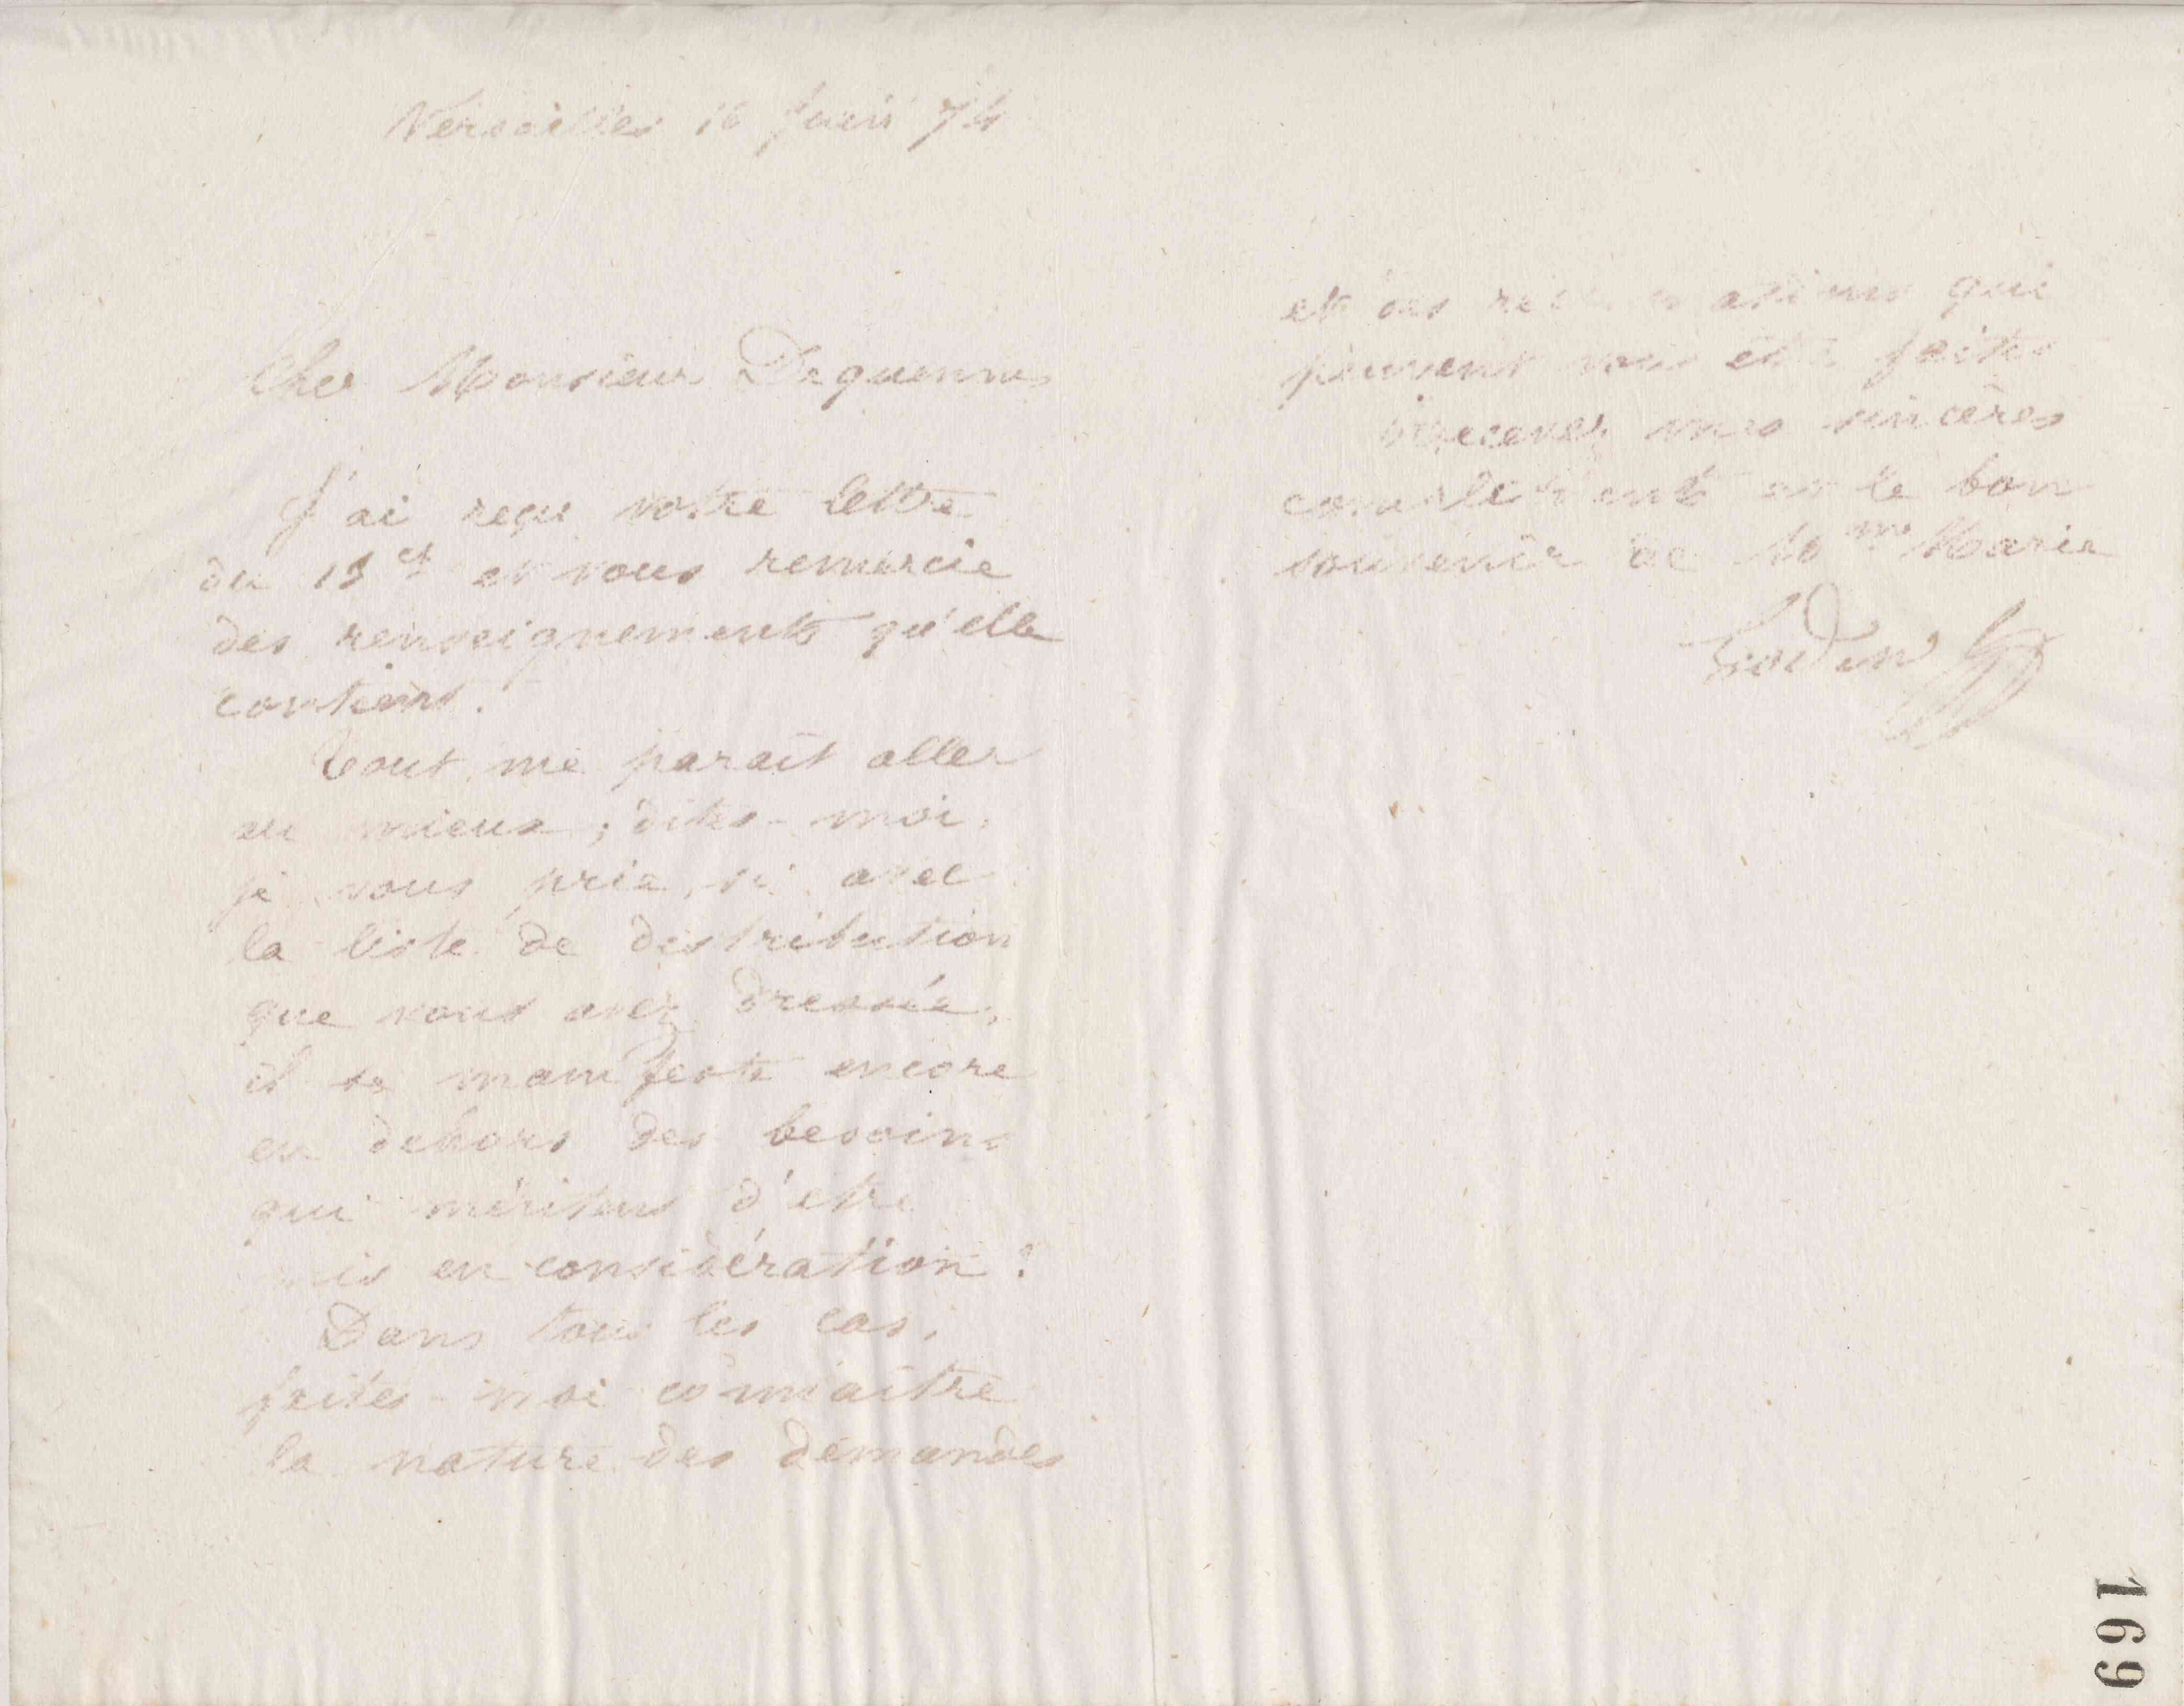 Versailles 16 Juin 74
Cher Monsieur Dequenne
J'ai reçu votre lettre
du 13 ct et vous remercie
des renseignements qu'elle
contient.
Tout me parait aller
au mieux ; dites-moi,
je vous prie, si avec
la liste de distribution
que vous avez dressée,
il se manifeste encore
en dehors des besoins
qui méritent d'etre
mis en considération ?
Dans tous les cas,
faites-moi connaître
la nature des demandes
et des réclamations qui
peuvent vous être faites
Recevez mes sincères
compliments et le bon
souvenir de Mme Marie
Godin
169